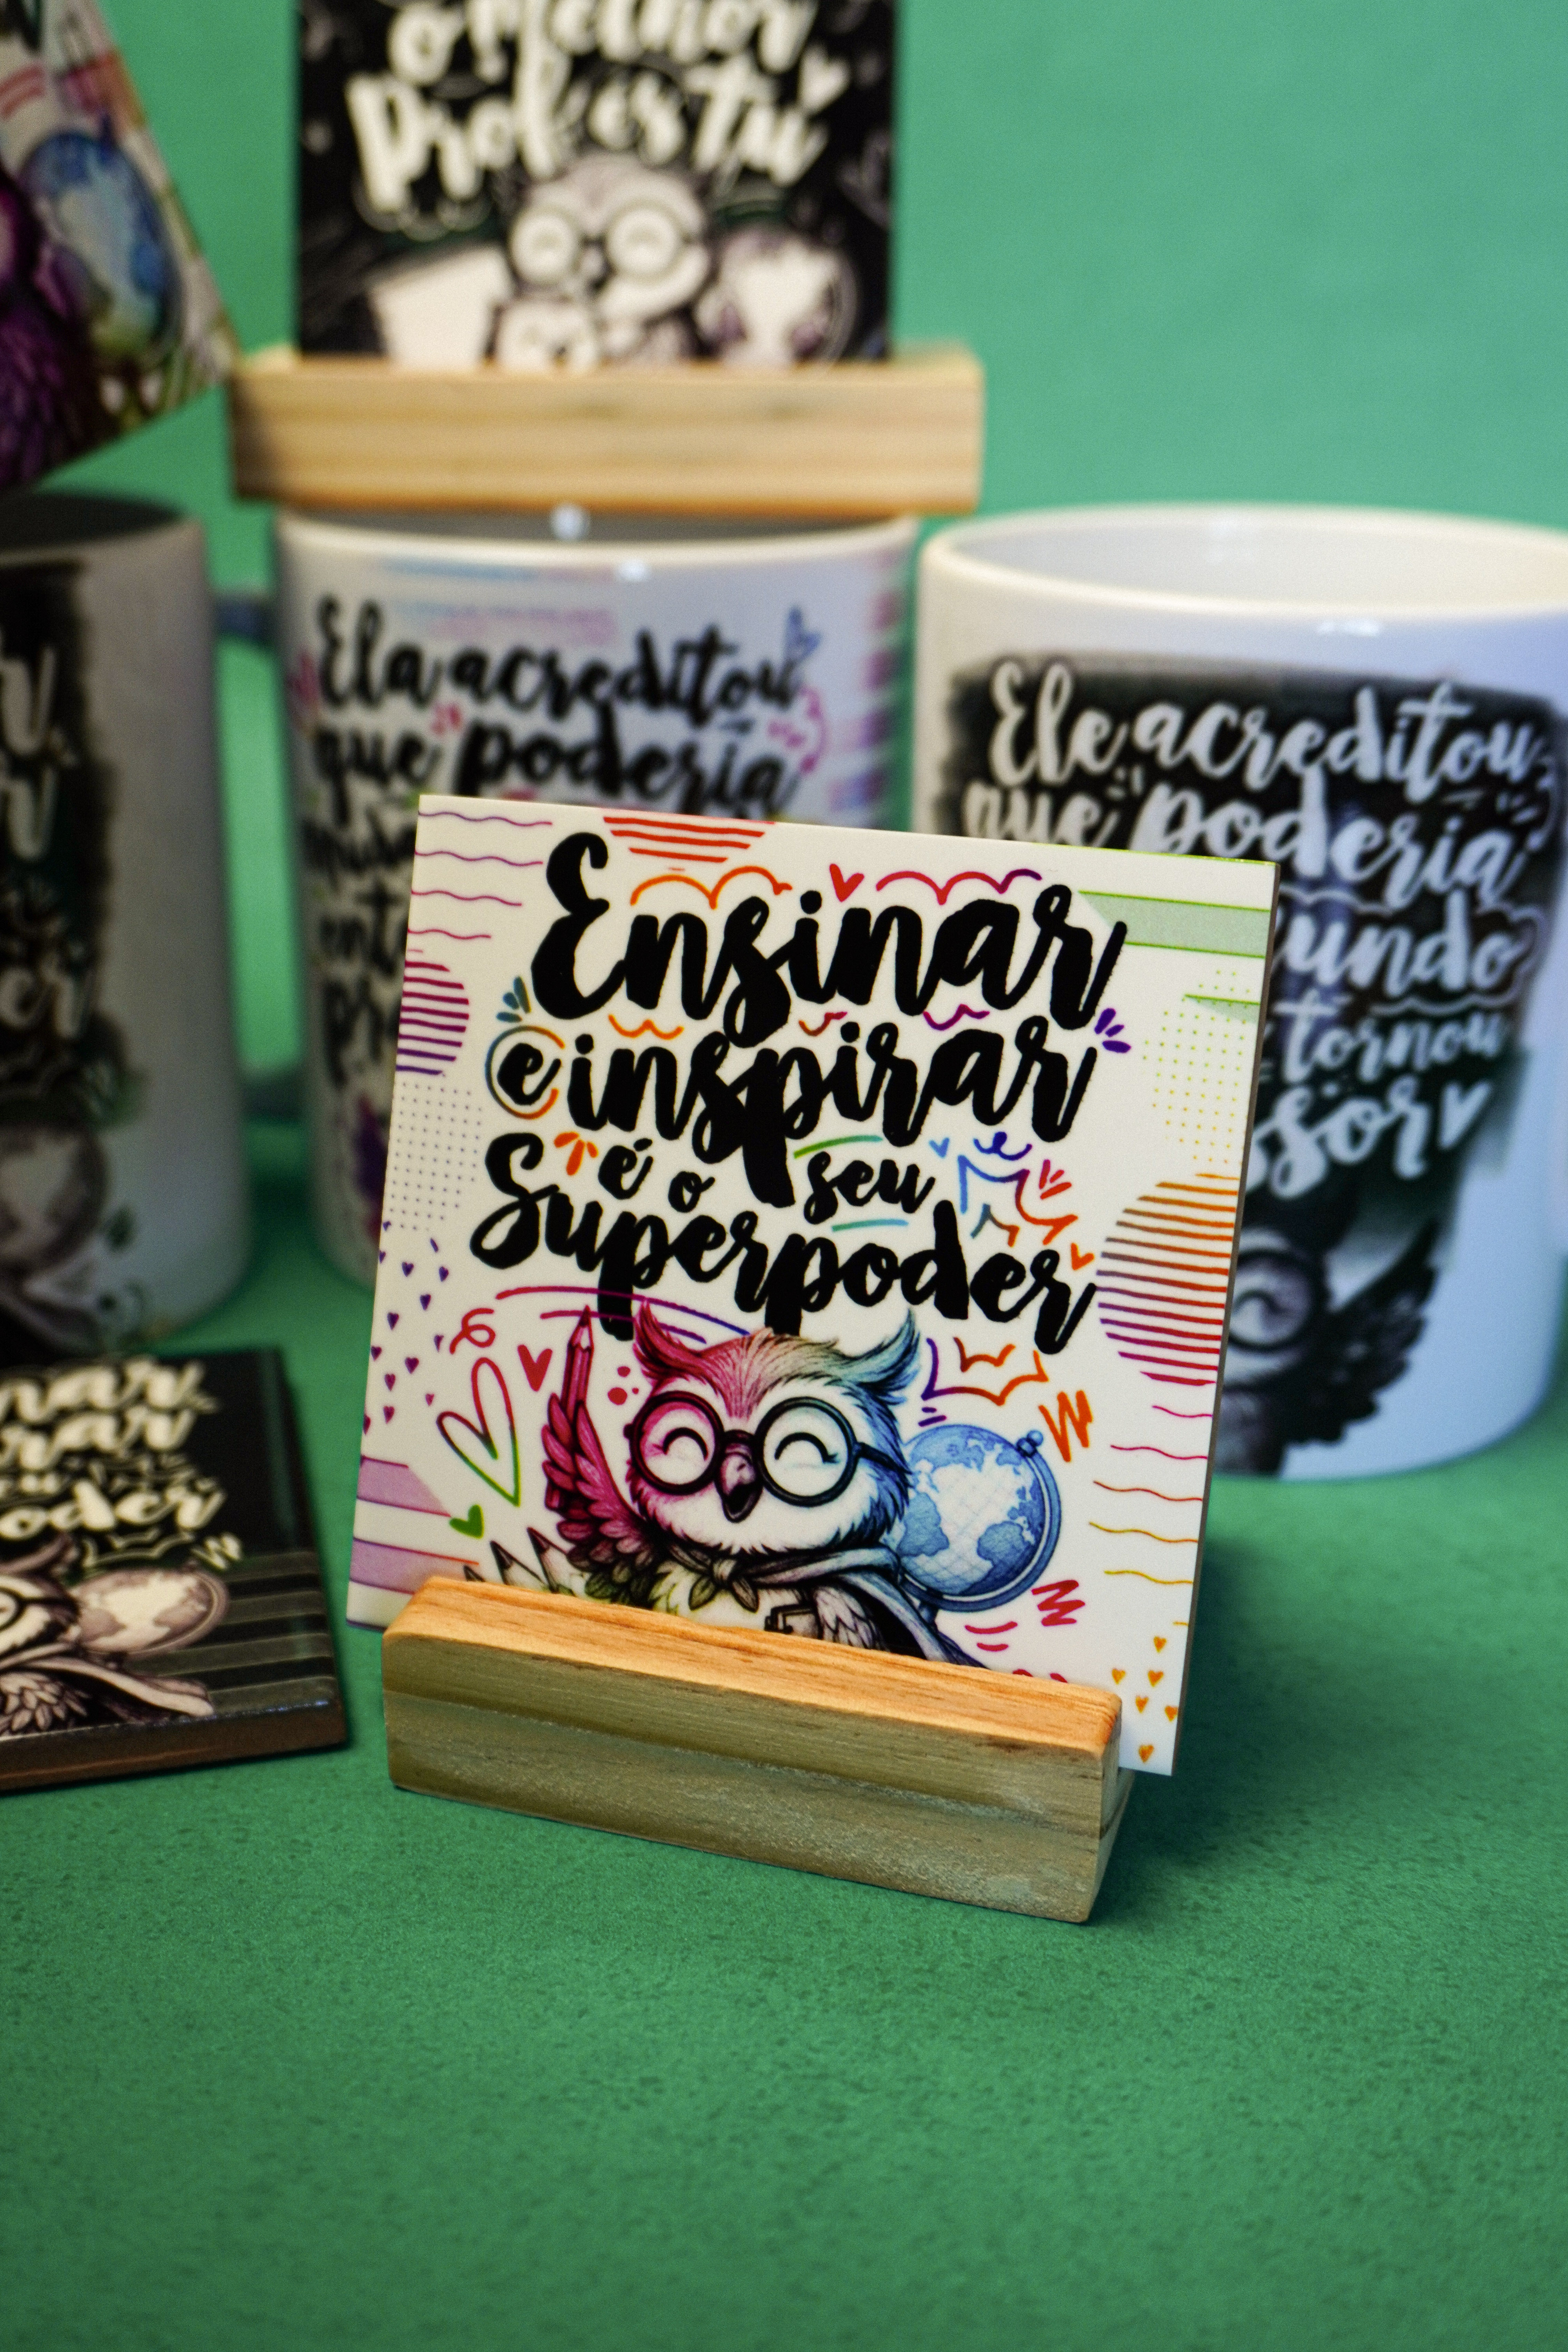 o Melhor
Profes tu
Ela acreditou
que poderia
Ele acreditou
que poderia
undo
tornou
ssor
Ensinar
e inspirar
é o seu
Superpoder
nar
rar
oder